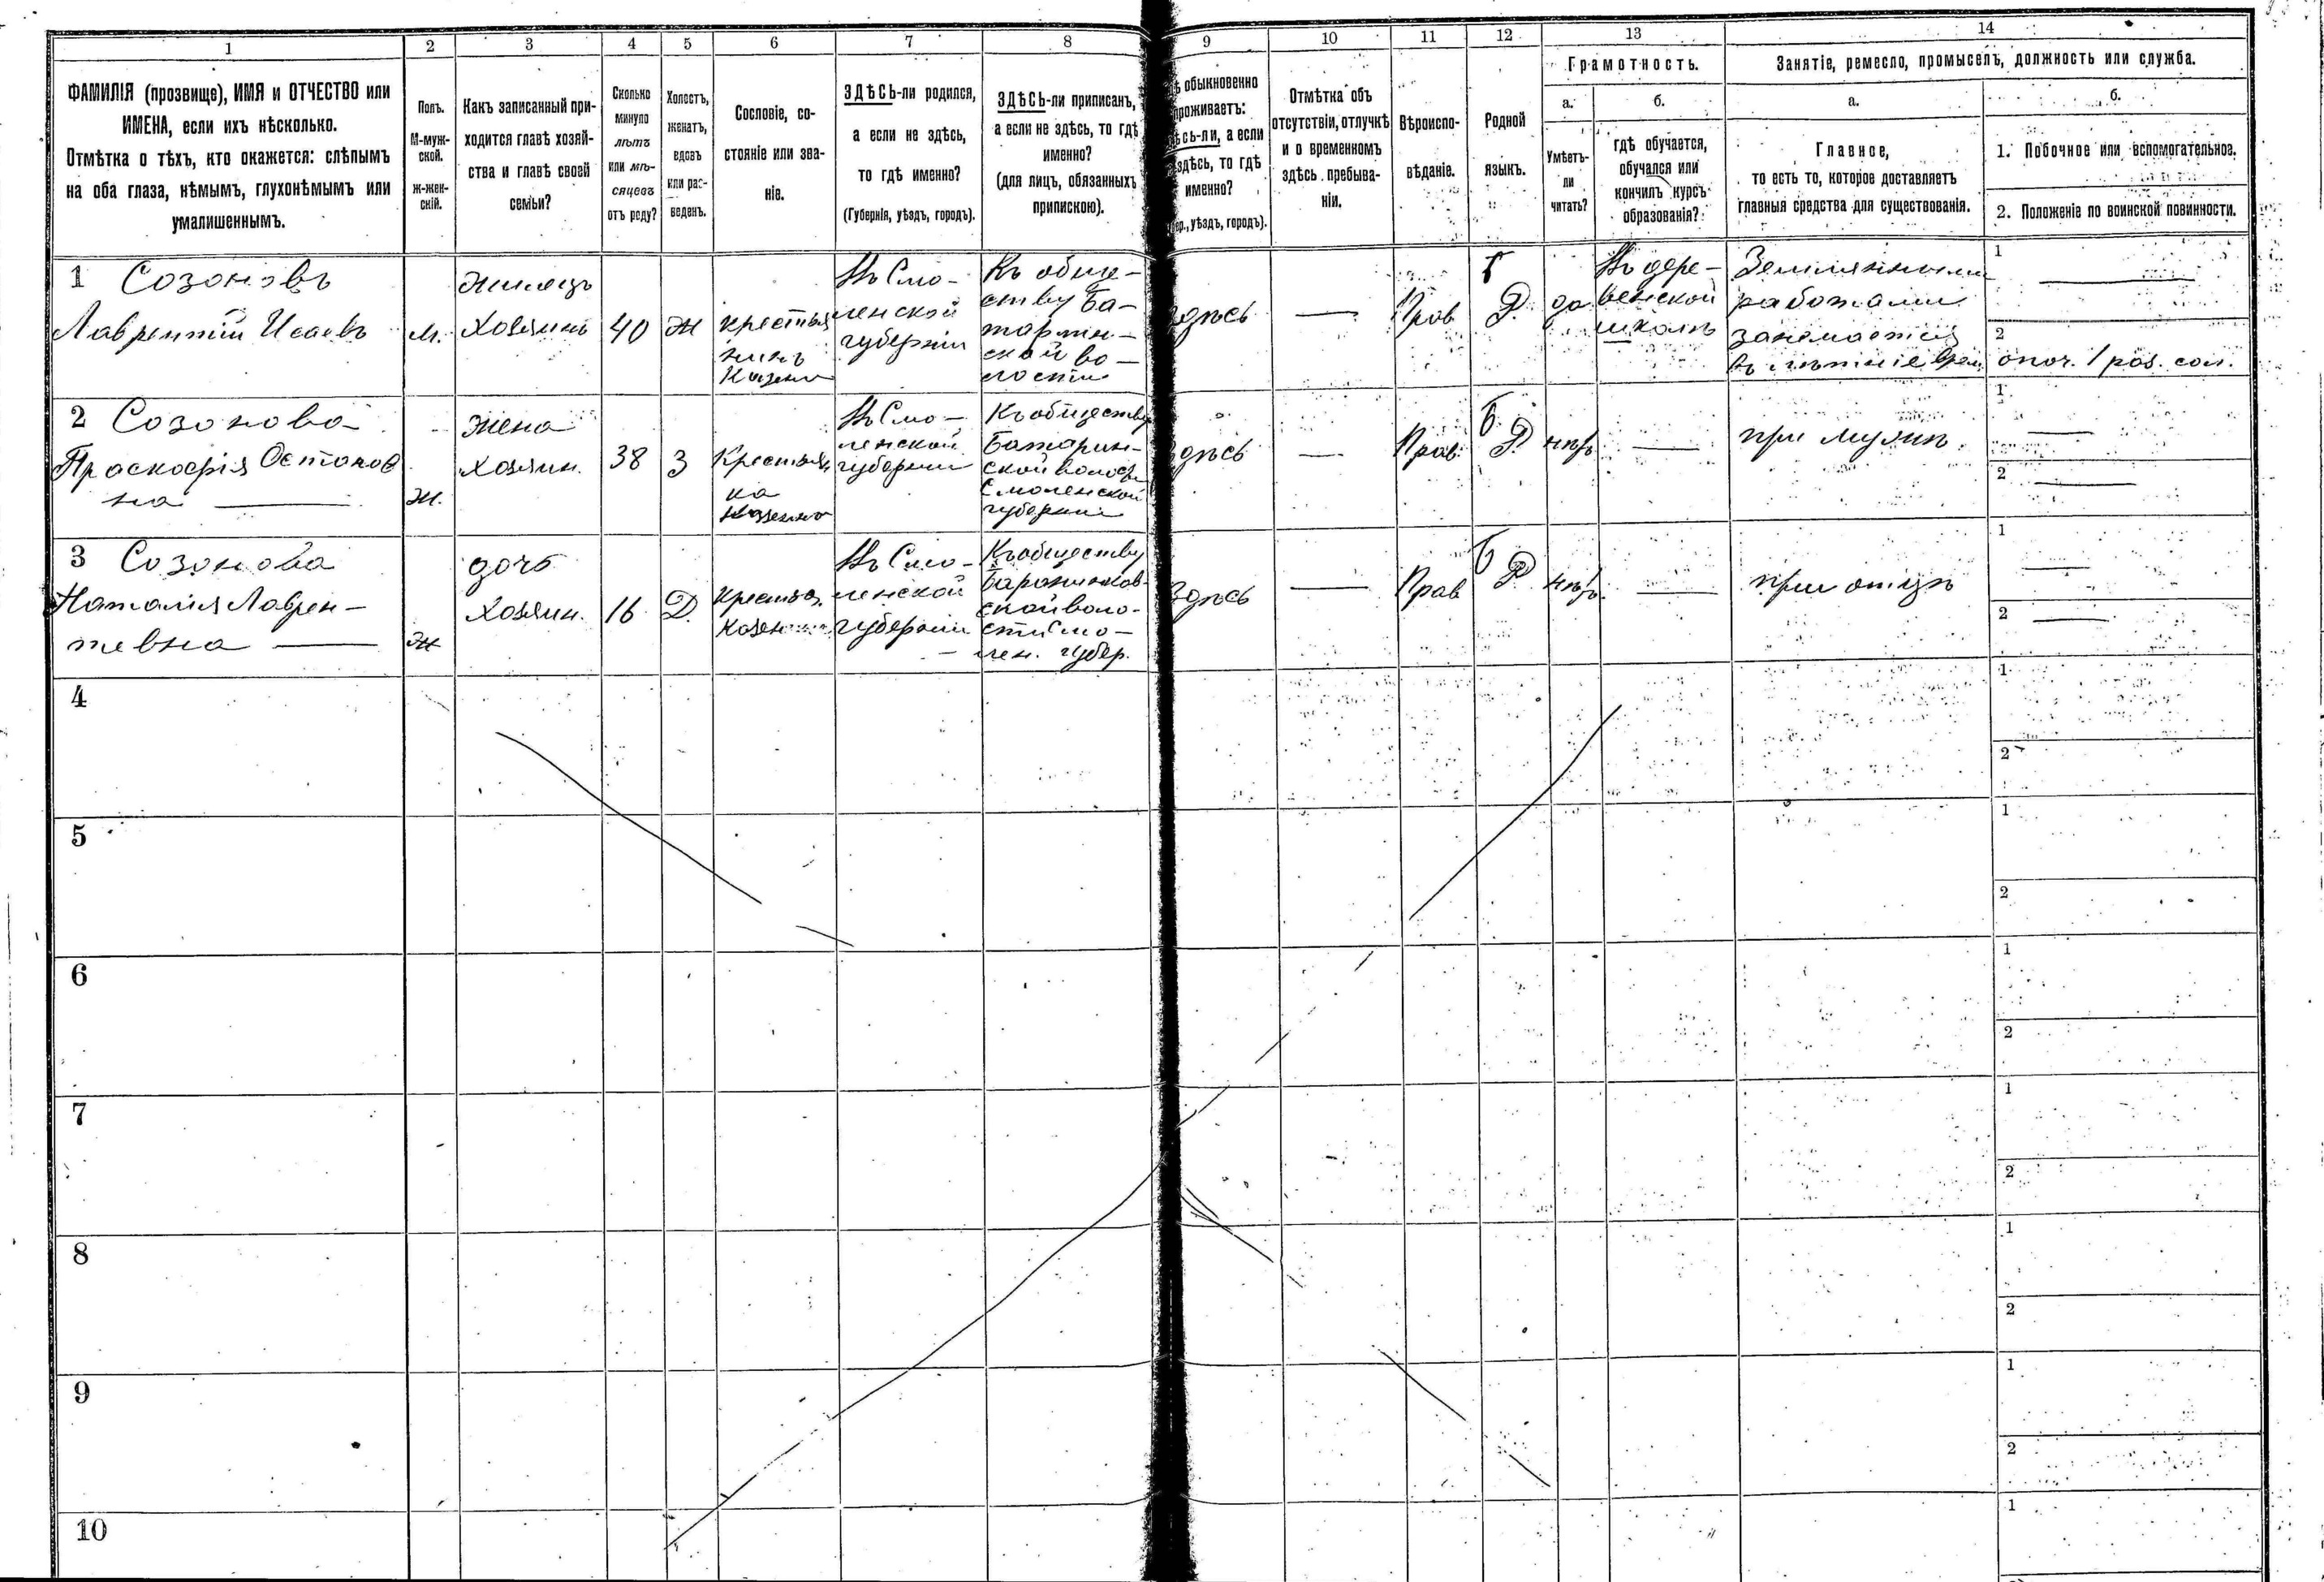 1
2
3
4
5
6
7
8
9
10
11
12
13
14
ФАМИЛІЯ (прозвище), ИМЯ и ОТЧЕСТВО или
ИМЕНА, если ихъ нѣсколько.
Отмѣтка о тѣхъ, кто окажется: слѣпымъ
на оба глаза, нѣмымъ, глухонѣмымъ или
умалишеннымъ.
Полъ.
М-муж-
ской.
ж-жен-
скій.
Какъ записанный при-
ходится главѣ хозяй-
ства и главѣ своей
семьи?
Сколько
минуло
лѣтъ
или мѣ-
сяцевъ
отъ роду?
Холостъ,
женатъ,
вдовъ
или раз-
веденъ.
Сословіе, со-
стояніе или зва-
ніе.
ЗДѢСЬ-ли родился,
а если не здѣсь,
то гдѣ именно?
(Губернія, уѣздъ, городъ).
ЗДѢСЬ-ли приписанъ,
а если не здѣсь, то гдѣ
именно?
(для лицъ, обязанныхъ
припискою).
обыкновенно
проживаетъ:
сь-ли, а если
здѣсь, то гдѣ
именно?
уѣздъ, городъ).
Отмѣтка объ
отсутствіи, отлучкѣ
и о временномъ
здѣсь пребыва-
ніи.
Вѣроиспо-
вѣданіе.
Родной
языкъ.
Грамотность.
а.
Умѣетъ-
ли
читать?
б.
гдѣ обучается,
обучался или
кончилъ курсъ
образованія?
Занятіе, ремесло, промыселъ, должность или служба.
а.
Главное,
то есть то, которое доставляетъ
главныя средства для существованія.
б.
1. Побочное или вспомогательное.
2. Положеніе по воинской повинности.
1 Созоновъ
Лаврентій Исаевъ
м.
Жилецъ
Хозяинъ
40
Ж
крестья
нинъ
Въ Смо-
ленской
губерніи
Къ обще-
ству Ба-
тарин-
ской во-
лости
здѣсь
—
Прав
Р.
да
Въ дере-
венской
школѣ
Земляными
работами
занемается
1
—
2
1 раз.
2 Созонова
Праскофія Остапов
на —
ж.
жена
Хозяин.
38
З
Крестьян
ка
Въ Смо-
ленской
губернии
Къ обществу
Батарин-
ской волости
Смоленской
губернии
здѣсь
—
Прав.
Б
Р
нѣтъ
—
при мужѣ.
1
2
—
3 Созонова
Наталія Лаврен-
тевна —
ж
дочь
Хозяин.
16
Д.
Крестья.
Въ Смо-
ленской
губернии
Къ обществу
ской воло-
сти Смо-
лен. губер.
здѣсь
—
Прав
Б
Р
нѣтъ.
—
при отцѣ
1
—
2
—
4
1
2
5
1
2
6
1
2
7
1
2
8
1
2
9
1
2
10
1